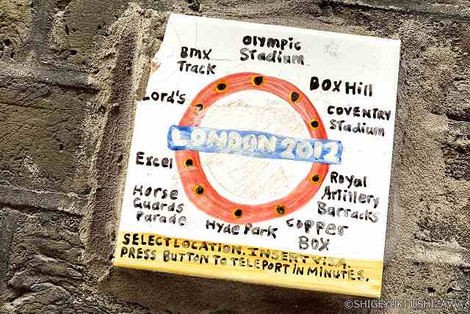 OLYMPIC
STADIUM
BMX
TRACK
BOX HILL
LORD'S
COVENTRY
STADIUM
LONDON 2012
EXCEL
ROYAL
ARTILLERY
BARRACKS
HORSE
GUARDS
PARADE
HYDE PARK
COPPER
BOX
SELECT LOCATION. INSERT VISA.
PRESS BUTTON TO TELEPORT IN MINUTES.
©SHIGEYUKI USHIZAWA